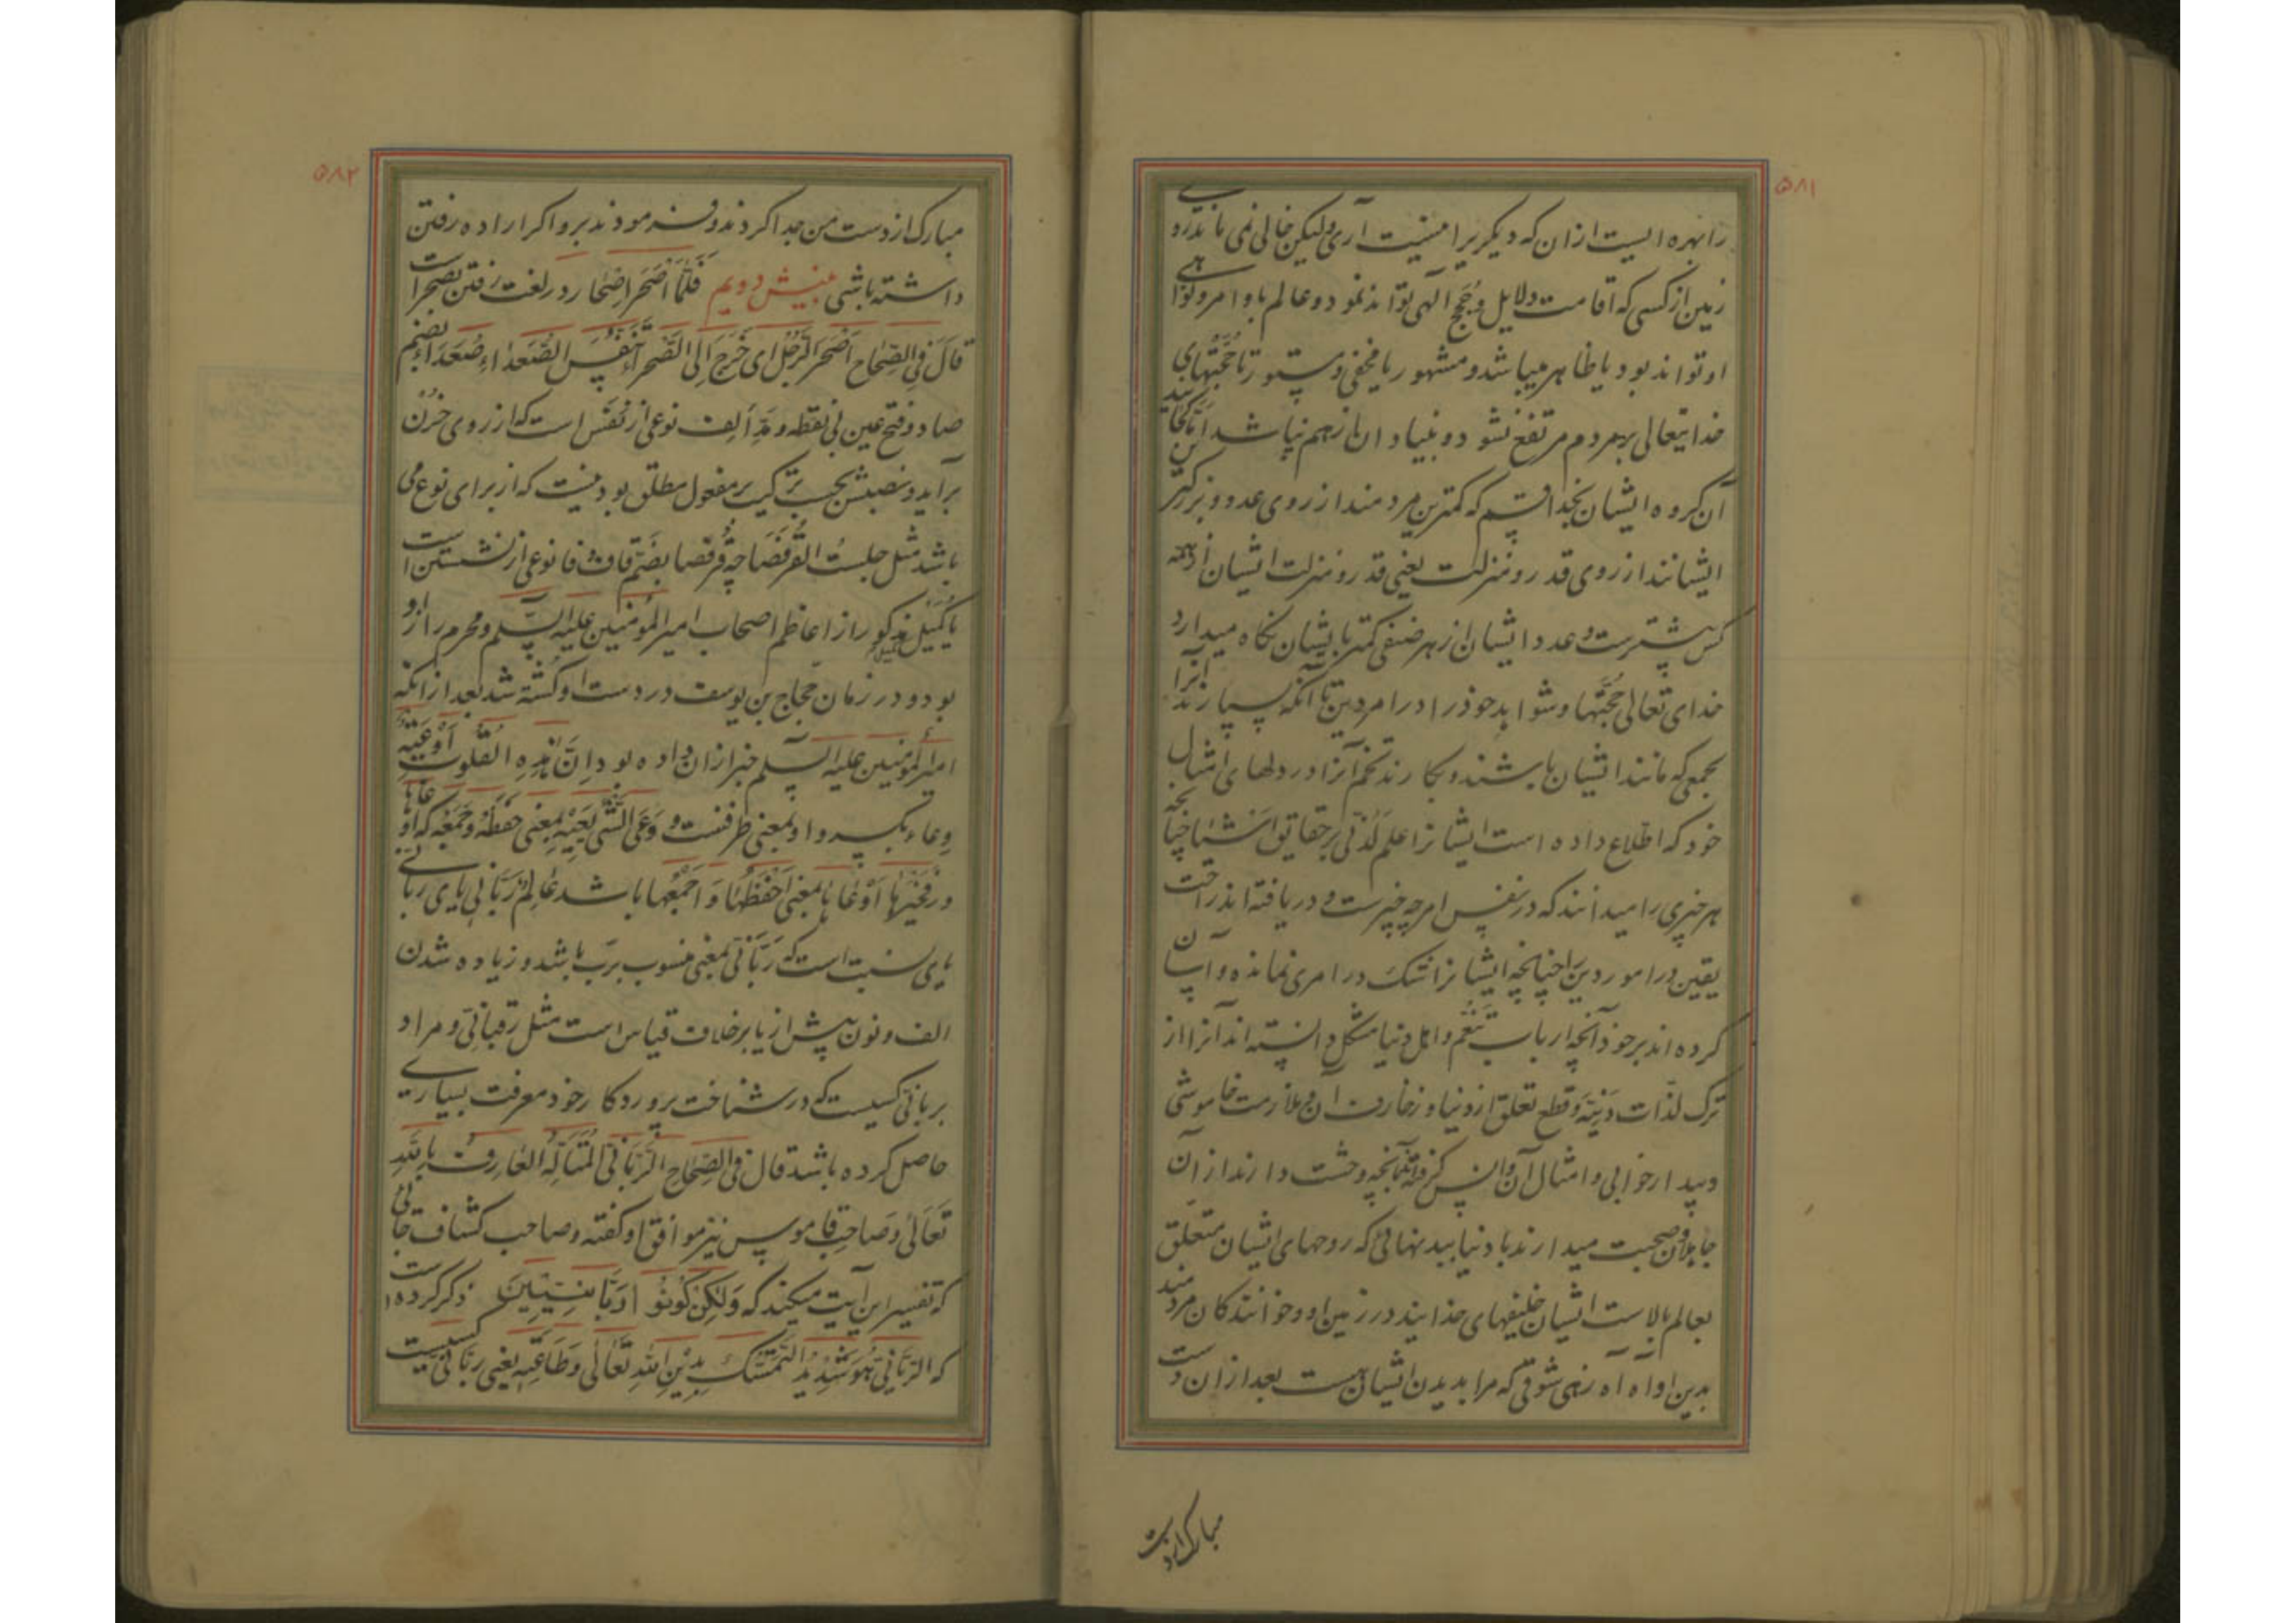 ۵۸۱
را بهره ایست ازان که دیگریرا نیست آری ولیکن خالی نمی ماند روی
زمین از کسی که اقامت دلایل و حجج الهی تواند نمود و عالم باوامر و نواهی
او تواند بود یا ظاهر میباشد و مشهور یا مخفی و مستور تا حجّتهای
خدایتعالی بر مردم مرتفع نشود و بنیاد ان از هم نپاشد امّا کجایند
آن کروه ایشان بخدا قسم که کمترین مردمند از روی عدد و بزرگترین
ایشانند از روی قدر و منزلت یعنی قدر و منزلت ایشان از همه
کس بیشترست و عدد ایشان از هر صنفی کمتر بایشان نگاه میدارد
خدای تعالی حجّتها و شواهد خود را در امر دین تا آنکه بسپارند آنرا
بجمعی که مانند ایشان باشند و بکارند تخم آنرا در دلهای امثال
خود که اطلاع داده است ایشانرا علم لدنّی بر حقایق اشیا چنانچه
هر چیزی را میدانند که در نفس امر چه چیزست و دریافته اند راحت
یقین در امور دین را چنانچه ایشانرا شک در امری نمانده و اسان
کرده اند بر خود آنچه ارباب تنعّم و اهل دنیا مشکل دانسته اند آنرا از
ترک لذّات دنیّه و قطع تعلق از دنیا و زخارف آن و ملازمت خاموشی
و بیدارخوابی و امثال آن و انس کرفته اند بآنچه وحشت دارند از آن
جاهلان و صحبت میدارند با دنیا ببدنهائی که روحهای ایشان متعلق
بعالم بالاست ایشان خلیفهای خدایند در زمین او و خوانندگان مردمند
بدین او آه آه زهی شوقی که مرا بدیدن ایشان هست بعد از ان دست
مبارک از دست
۵۸۲
مبارک از دست من جدا کردند و فرمودند برو اکر اراده رفتن
داشته باشی بینش دویم فَلَمّا اَصْحَرَ اصحار در لغت رفتن بصحراست
قالَ فی الصِّحاح اَصْحَرَ الرَّجُلُ ای خَرَجَ اِلَی الصَّحْراءِ تَنَفَّسَ الصُّعَداءَ صُعَداء بضم
صاد و فتح عین بی نقطه و مدّ الف نوعی از تنفّس است که از روی حزن
برآید و نصبش بحسب ترکیب بر مفعول مطلق بودنیست که از برای نوع می
باشد مثل جلستُ القُرفُصا چه قُرفُصا بضمّ قاف و فا نوعی از نشستن است
یا کُمَیْل کمیل مذکور از اعاظم اصحاب امیرالمؤمنین علیه السّلم و محرم راز او
بود و در زمان حجّاج بن یوسف در دست او کشته شد بعد از انکه
امیرالمؤمنین علیه السّلم خبر ازان داده بود اِنَّ هٰذِهِ القُلُوبَ اَوْعِیَةٌ
وِعاء بکسر واو بمعنی ظرفست و وَعَی الشَّیْ یَعِیْهِ بمعنی حَفِظَهُ وَ جَمَعَه که اَوْعاها
در فَخَیْرُها اَوْعاها بمعنی اَحْفَظُها وَ اَجْمَعُها باشد عالِمٌ رَبّانِی یای ربّانی
یای نسبت است که رَبّانی بمعنی منسوب بربّ باشد و زیاده شدن
الف و نون پیش از یا بر خلاف قیاس است مثل رقبانیّ و مراد
بربانی کسیست که در شناخت پروردکار خود معرفت بسیاری
حاصل کرده باشد قال فی الصِّحاحِ الرَّبّانی المُتَأَلِّهُ العارِفُ بِاللّهِ
تَعالی و صاحب قاموس نیز موافق او گفته و صاحب کشّاف جائی
که تفسیر این آیت میکند که وَلٰکِنْ کُونُوا رَبّانِیّینَ ذکر کرده است
که الرَّبّانِیُّ هُوَ شَدِیْدُ التَّمَسُّکِ بِدِیْنِ اللّهِ تَعالی وَ طاعَتِهِ یعنی ربّانی کسیست